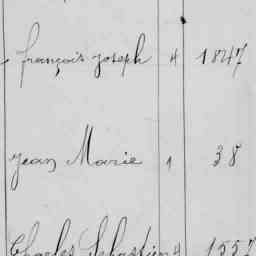 françois joseph 4 1847
jean Marie 1 38
Charles Sébastien 4 1557